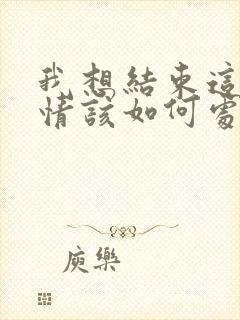 我想結束這
情該如何處
庾樂